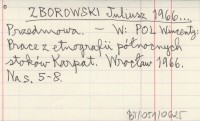 ZBOROWSKI Juliusz 1966...
Przedmowa. – W: POL Wincenty:
Prace z etnografii północnych
stoków Karpat. Wrocław 1966.
Na s. 5-8.